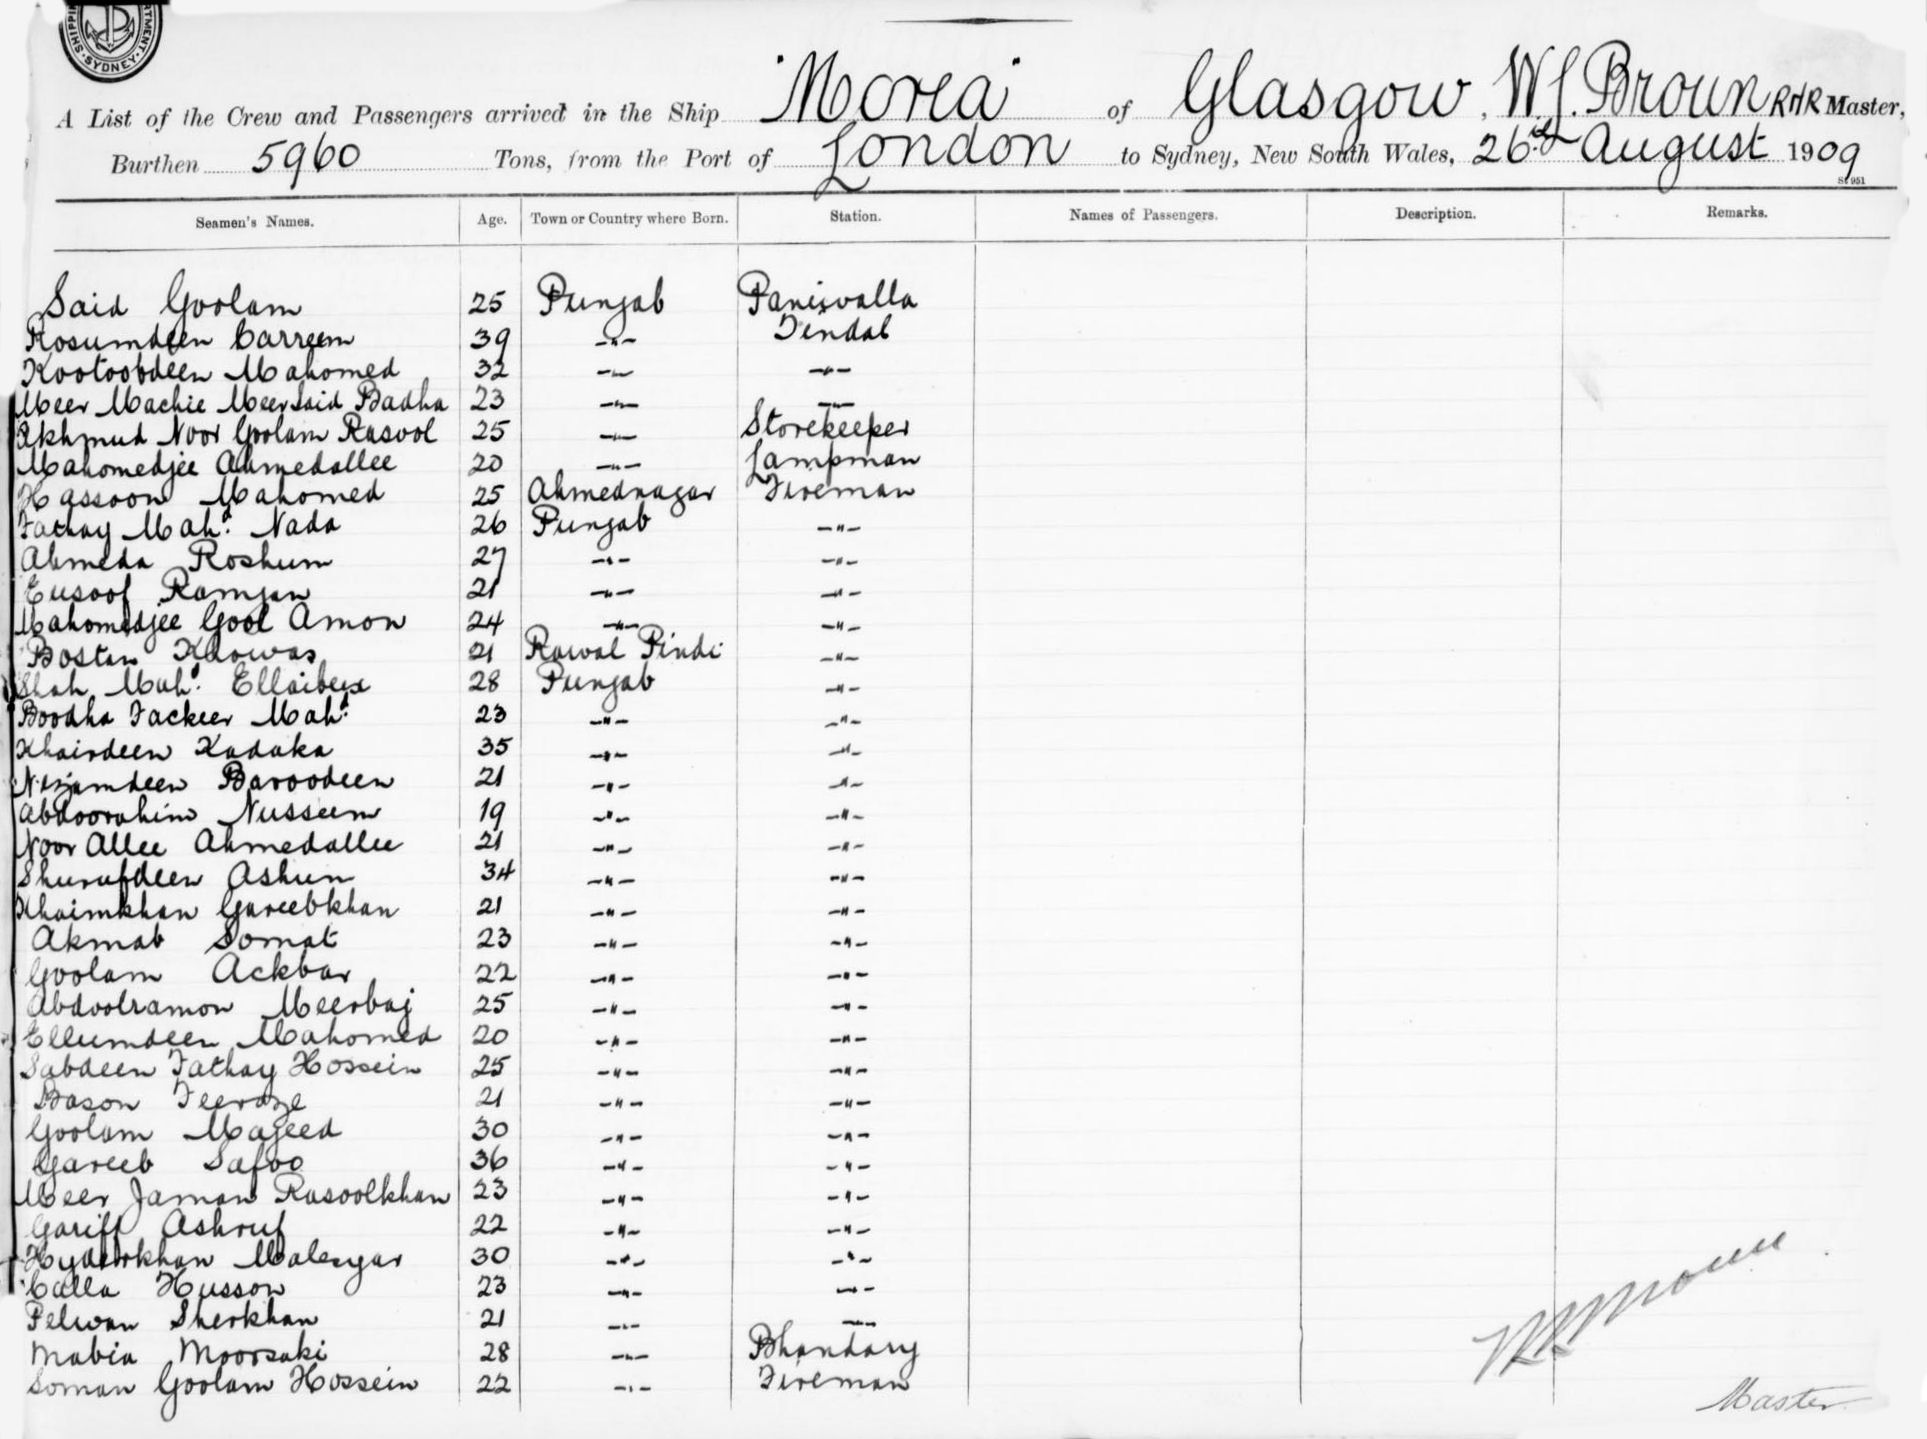 SHIPPI
RTMENT
SYDNEY
A List of the Crew and Passengers arrived in the Ship "Morea" of Glasgow, W.L. Broun RNR Master,
Burthen 5960 Tons, from the Port of London to Sydney, New South Wales, 26th August 1909
St 951
Seamen's Names. Age. Town or Country where Born. Station. Names of Passengers. Description. Remarks.
Said Goolam 25 Punjab Paniwalla
Rosumdeen Carreem 39 -"- Tindal
Kootoobdeen Mahomed 32 -"- -"-
Meer Machie Meer Said Badha 23 -"- -"-
Akhmud Noor Goolam Rasool 25 -"- Storekeeper
Mahomedjee Ahmedallee 20 -"- Lampman
Hassoon Mahomed 25 Ahmednagar Fireman
Fathay Mahd. Nada 26 Punjab -"-
Ahmeda Roshum 27 -"- -"-
Eusoof Ramjan 21 -"- -"-
Mahomedjee Gool Amon 24 -"- -"-
Bostan Khowas 21 Rawal Pindi -"-
Shah Mahd. Ellaibux 28 Punjab -"-
Boodha Fackeer Mahd. 23 -"- -"-
Khairdeen Kadaka 35 -"- -"-
Nizamdeen Baroodeen 21 -"- -"-
Abdoorahim Nusseem 19 -"- -"-
Noor Allee Ahmedallee 21 -"- -"-
Shurufdeen Ashun 34 -"- -"-
Khaimkhan Gareebkhan 21 -"- -"-
Akmab Somat 23 -"- -"-
Goolam Ackbar 22 -"- -"-
Abdoolramon Meerbaj 25 -"- -"-
Ellumdeen Mahomed 20 -"- -"-
Sabdeen Fathay Hossein 25 -"- -"-
Bason Feeroze 21 -"- -"-
Goolam Majeed 30 -"- -"-
Gareeb Safoo 36 -"- -"-
Meer Jaman Rasoolkhan 23 -"- -"-
Gariff Ashruf 22 -"- -"-
Hyderkhan Malesyar 30 -"- -"-
Calla Husson 23 -"- -"-
Pelwan Sherkhan 21 -"- -"-
Mabia Moorsaki 28 -"- Bhandary
Soman Goolam Hossein 22 -"- Fireman
Master